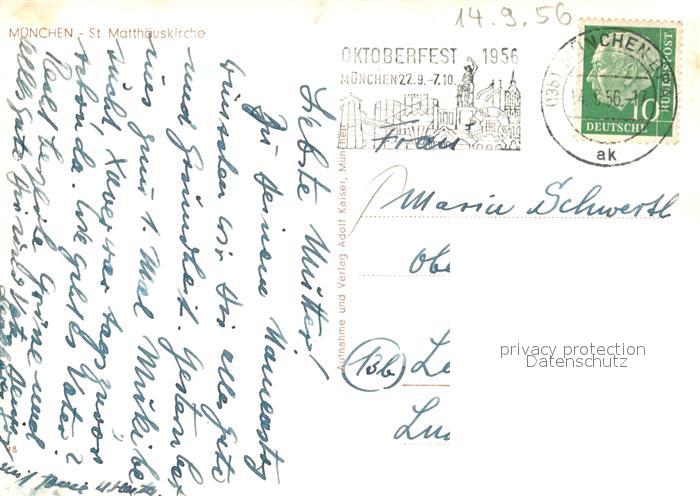 14.9.56
MÜNCHEN - St Matthäuskirche
OKTOBERFEST 1956
MÜNCHEN 22.9.-7.10.
(13b) MÜNCHEN
14.9.56.-17
ak
10
DEUTSCHE
BUNDESPOST
Liebe Mutter!
Zu Deinem Namenstag
wünschen wir Dir alles Gute
und Gesundheit. Gestern hat
uns zum 1. Mal
nicht Xaver war tags zuvor
schon da. Wie geht es Vater?
Recht herzliche Grüsse und
alles Gute
Aufnahme und Verlag Adolf Kaiser, München
Frau
Maria Schwertl
Obe
(13b) La
Lu
privacy protection
Datenschutz